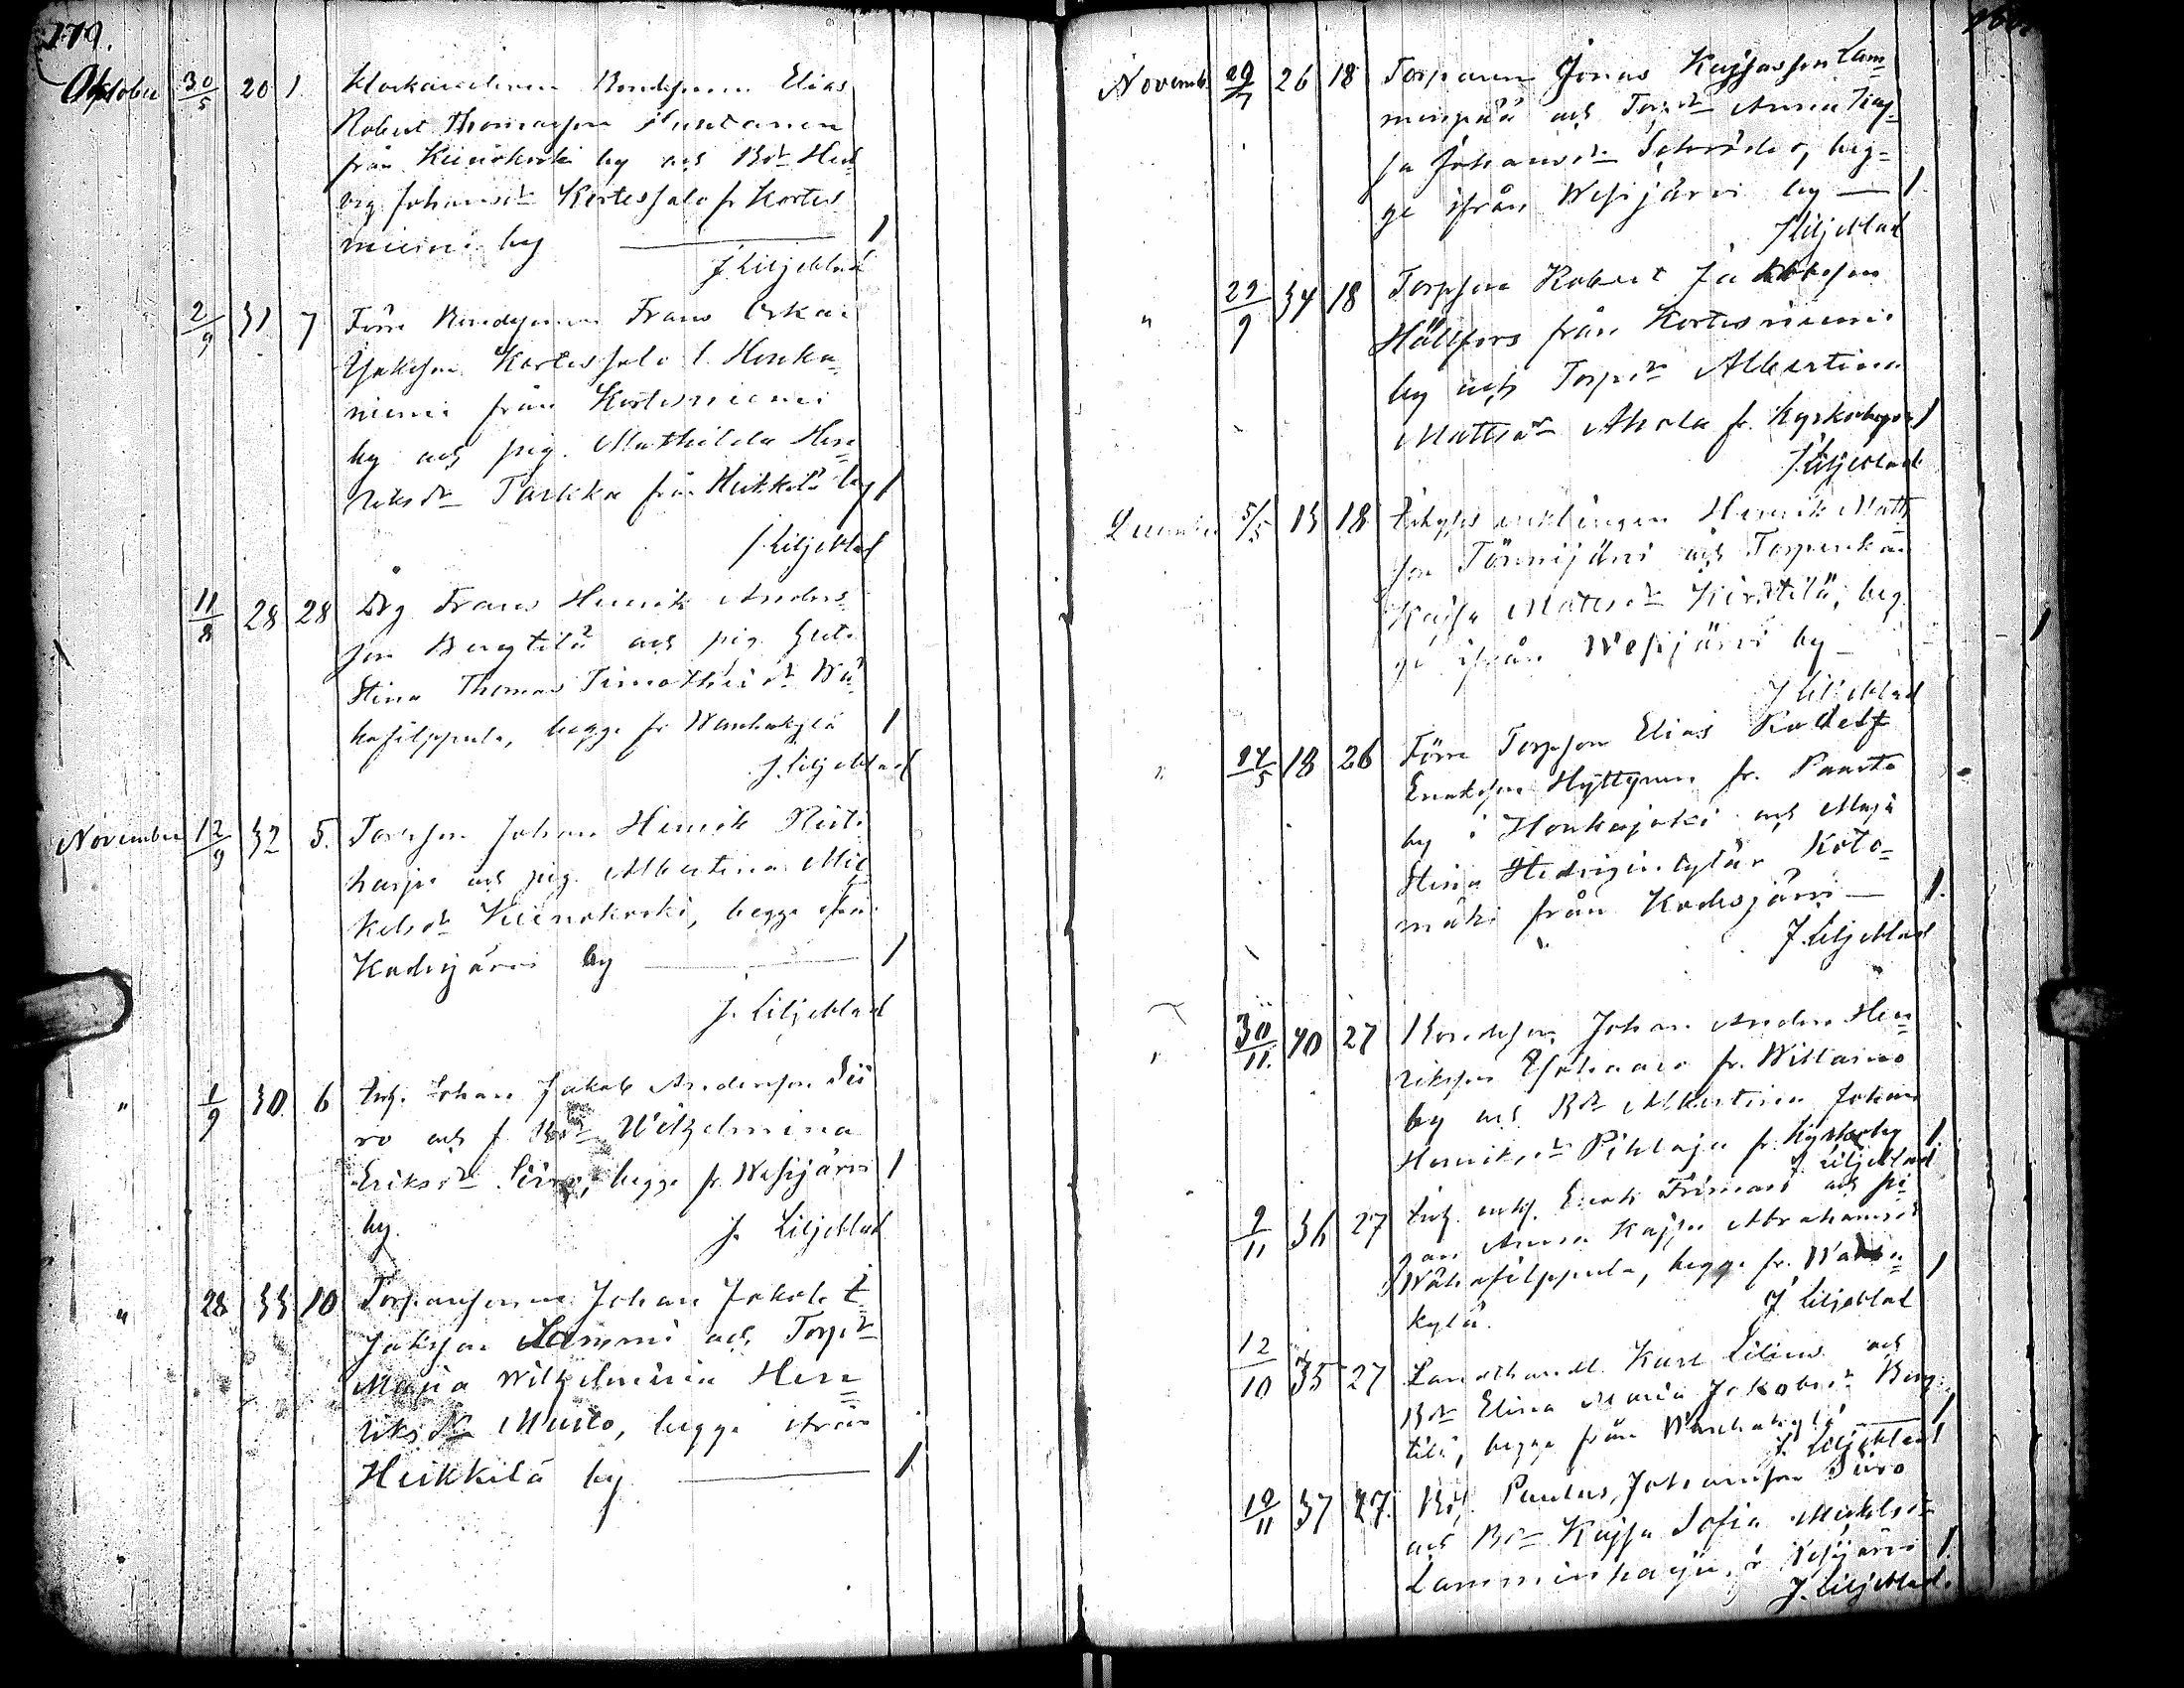 279.
Oktober 30/5 20 1 Bondesonen Elias
Robert Thomasson
från Kiinokoski by och Bdr Hed
vig Johansdr Kortessalo fr Kortes
niemi by — 1
J. Liljeblad
2/9 31 7 Förre Bondesonen Frans Oskar
Isaksson Kortessalo l. Honka
niemi från Kortesniemi
by och pig. Mathilda Hen
riksdr Tarkka från Heikkilä by 1
J. Liljeblad
11/8 28 28 Drg Frans Henrik Anders
son Bergtilä och pig.
Stina Thomas Timotheidr Wä
hafilppula, begge fr Wanhakylä 1
J. Liljeblad
November 12/9 32 5. Torpson Johan Henrik
harju och pig. Albertina Mic
kelsdr Kiinokoski, begge från
Kodisjärvi by — 1
J. Liljeblad
" 1/9 30. 6 Johan Jakob Andersson Sii
ro och f. Bdr Wilhelmina
Eriksdr Siiro, begge fr. Wesijärvi 1
by. J. Liljeblad
" 28 33 10 Johan Jakob
Jaksson Lammi och Torpdr
Maria Wilhelmina Hen
riksdr Musto, begge från
Heikkilä by — 1
Novemb. 29/7 26 18 Torparen Jonas Kajsasson Lam
minpää och Torpdr Anna Kaj
sa Johansdr Schröder, beg
ge ifrån Wesijärvi by — 1.
J. Liljeblad
" 29/9 34 18 Torpson Robert Jakobsson
Hällfors från Kortesniemi
by och Torpdr Albertina
Mattsdr Ahola fr. Kyrkobyn 1
J. Liljeblad
December 5/5 13 18 enklingen Henrik Matts
son Tönnijärvi och Torpenkan
Kajsa Mattsdr Kirstilä, beg
ge ifrån Wesijärvi by — 1
J. Liljeblad
" 24/5 18 26 Förre Torpson Elias Rodolf
Enoksson Hyttynen fr. Paasto
by i Honkajoki och Maja
Stina Hedvigintytär Koto
mäki från Kodisjärvi — 1.
J. Liljeblad
" 30/11. 40 27 Bondeson Johan Anders Hen
riksson Isohaaro fr. Willamo
by och Bdr Albertina Johan
Henriksdr Pihlaja fr. Kyrkoby 1
J. Liljeblad
9/11 36 27 enkl. Enok Friman och pi
gan Anna Kajsa Abrahamsdr
Wähäfilppula, begge fr. Wanha
kylä. 1
J. Liljeblad
12/10 35 27 Landthandl. Karl Lilius och
Bdr Elina Maria Jakobsdr Berg
tilä, begge från Wanhakylä — 1
J. Liljeblad
10/11 37 27. Bd. Paulus Johansson Siiro
och Bdr Kajsa Sofia Mickelsdr
Lamminharju, fr Wesijärvi 1.
J. Liljeblad.